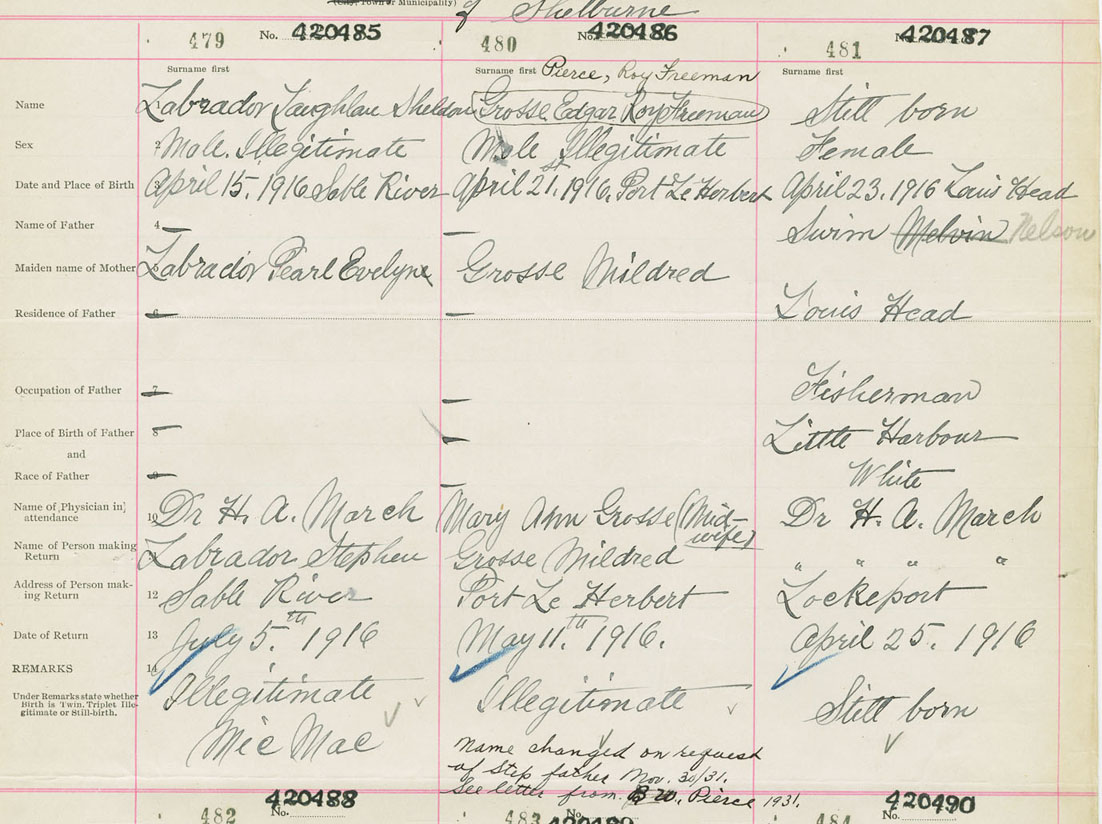 (City, Town or Municipality) of Shelburne
479 No. 420485
480 No. 420486
481 No. 420487
Surname first
Surname first Pierce, Roy Freeman
Surname first
Name 1 Labrador Laughlan Sheldon
Grosse Edgar Roy Freeman
Still born
Sex 2 Male. Illegitimate
Male Illegitimate
Female
Date and Place of Birth 3 April 15. 1916 Sable River
April 21st. 1916. Port Le Herbert
April 23. 1916 Louis Head
Name of Father 4 —
—
Swim Melvin Nelson
Maiden name of Mother 5 Labrador Pearl Evelyne
Grosse Mildred
Residence of Father 6 —
—
Louis Head
Occupation of Father 7 —
—
Fisherman
Place of Birth of Father 8 —
—
Little Harbour
and
Race of Father 9 —
—
White
Name of Physician in attendance 10 Dr H. A. March
Mary Ann Grosse (Mid-wife)
Dr H. A. March
Name of Person making Return Labrador Stephen
Grosse Mildred
" " " "
Address of Person making Return 12 Sable River
Port Le Herbert
Lockeport
Date of Return 13 July 5.th 1916
May 11.th 1916.
April 25. 1916
REMARKS 14
Under Remarks state whether Birth is Twin, Triplet Illegitimate or Still-birth.
Illegitimate
Mic Mac
Illegitimate
Name changed on request
of Step father Nov. 30/31.
See letter from B W. Pierce 1931.
Still born
482 No. 420488
483 No. 420489
484 No. 420490